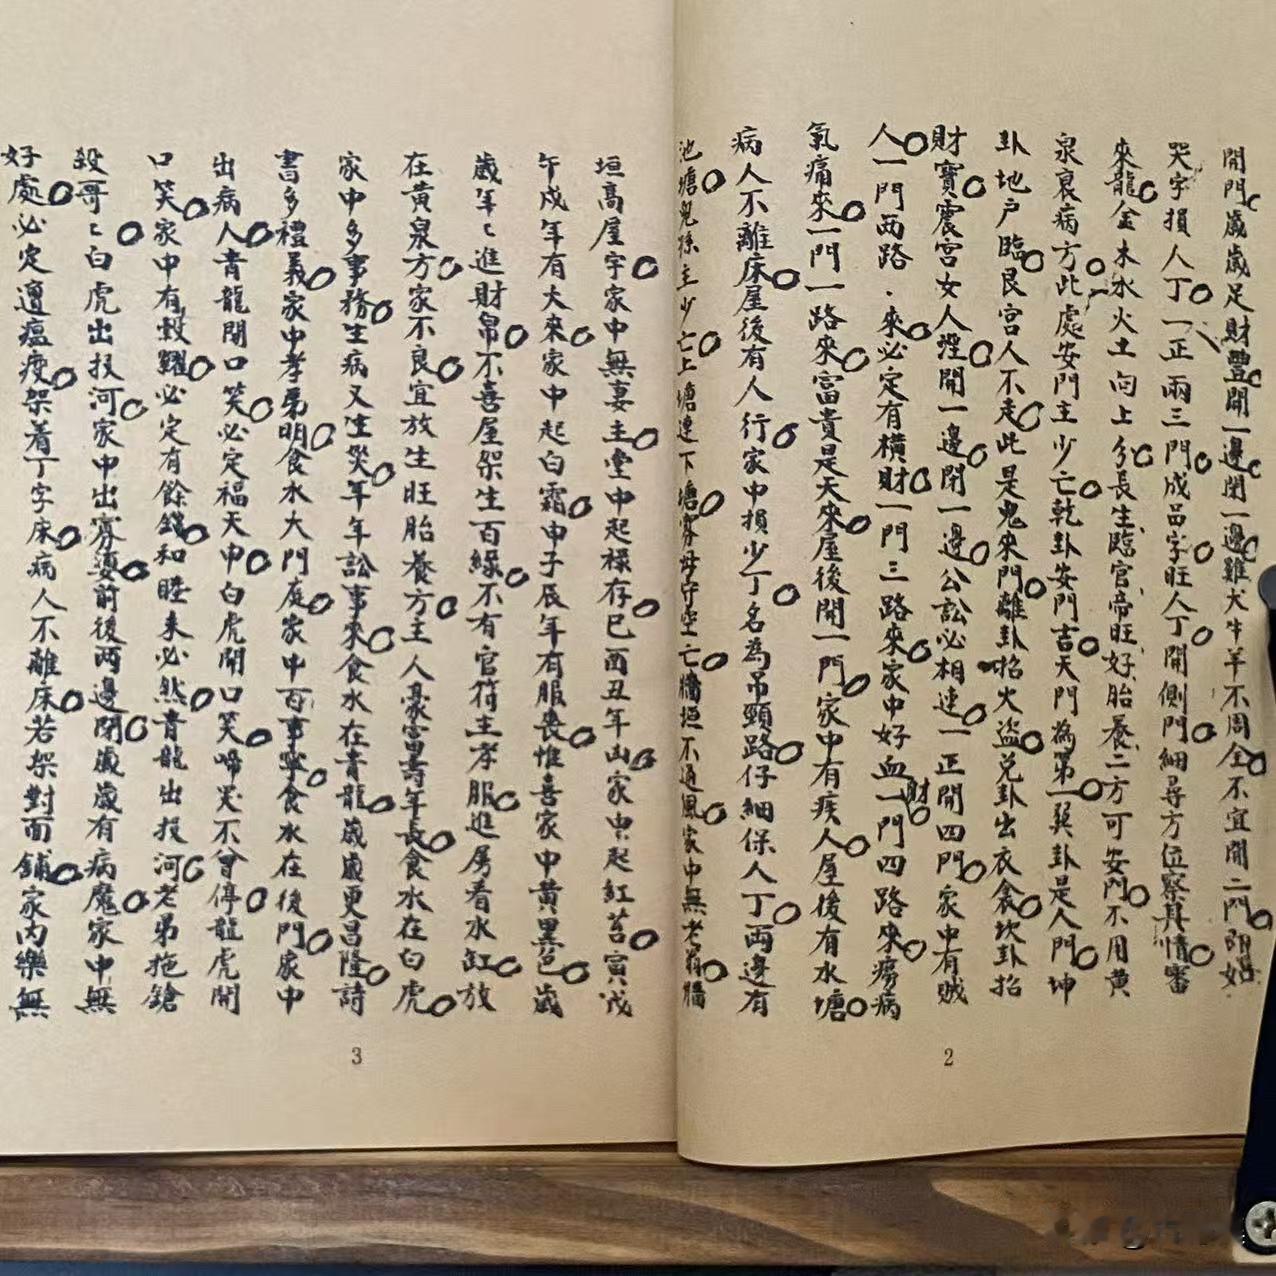 開門歲歲足財豐開一邊閉一邊雞犬牛羊不周全不宜開二門朗如
哭字損人丁一正兩三門成品字旺人丁開側門細尋方位察其情審
來龍金木水火土向上分長生臨官帝旺好胎養二方可安門不用黄
泉衰病方此處安門主少亡乾卦安門吉天門為第一巽卦是人門坤
卦地户臨艮宮人不走此是鬼來門離卦招火盜兑卦出衣食坎卦招
財寶震宮女人淫開一邊閉一邊公訟必相連一正開四門家中有贼
人一門西路來必定有橫財一門三路來家中好血財一門四路來癆病
氣痛來一門一路來富貴是天來屋後開一門家中有疾人屋後有水塘
病人不離床屋後有人行家中損少丁名為吊頸路仔細保人丁両邊有
池塘兒孫主少亡上塘連下塘寡母守空亡牆垣不通風家中無老翁牆
垣高屋字家中無妻主堂中起禄存巳酉丑年山家中起紅苔寅戊
午戍年有大來家中起白霜申子辰年有服喪惟喜家中黄黑色歲
歲年〻進財帛不喜屋架生百線不有官符主孝服進房看水缸放
在黄泉方家不良宜放生旺胎養方主人豪富壽年長食水在白虎
家中多事務生病又生災年年訟事來食水在青龍歲歲更昌隆詩
書多禮義家中孝弟明食水大門庭家中百事寧食水在後門家中
出病人青龍開口笑必定福天申白虎開口笑啼哭不曾停龍虎開
口笑家中有穀糶必定有餘錢和睦未必然青龍出投河老弟拖鎗
殺哥〻白虎出投河家中出寡婆前後两邊閉歲歲有病魔家中無
好處必定遭瘟疫架着丁字床病人不離床若架對面鋪家内樂無
3
2